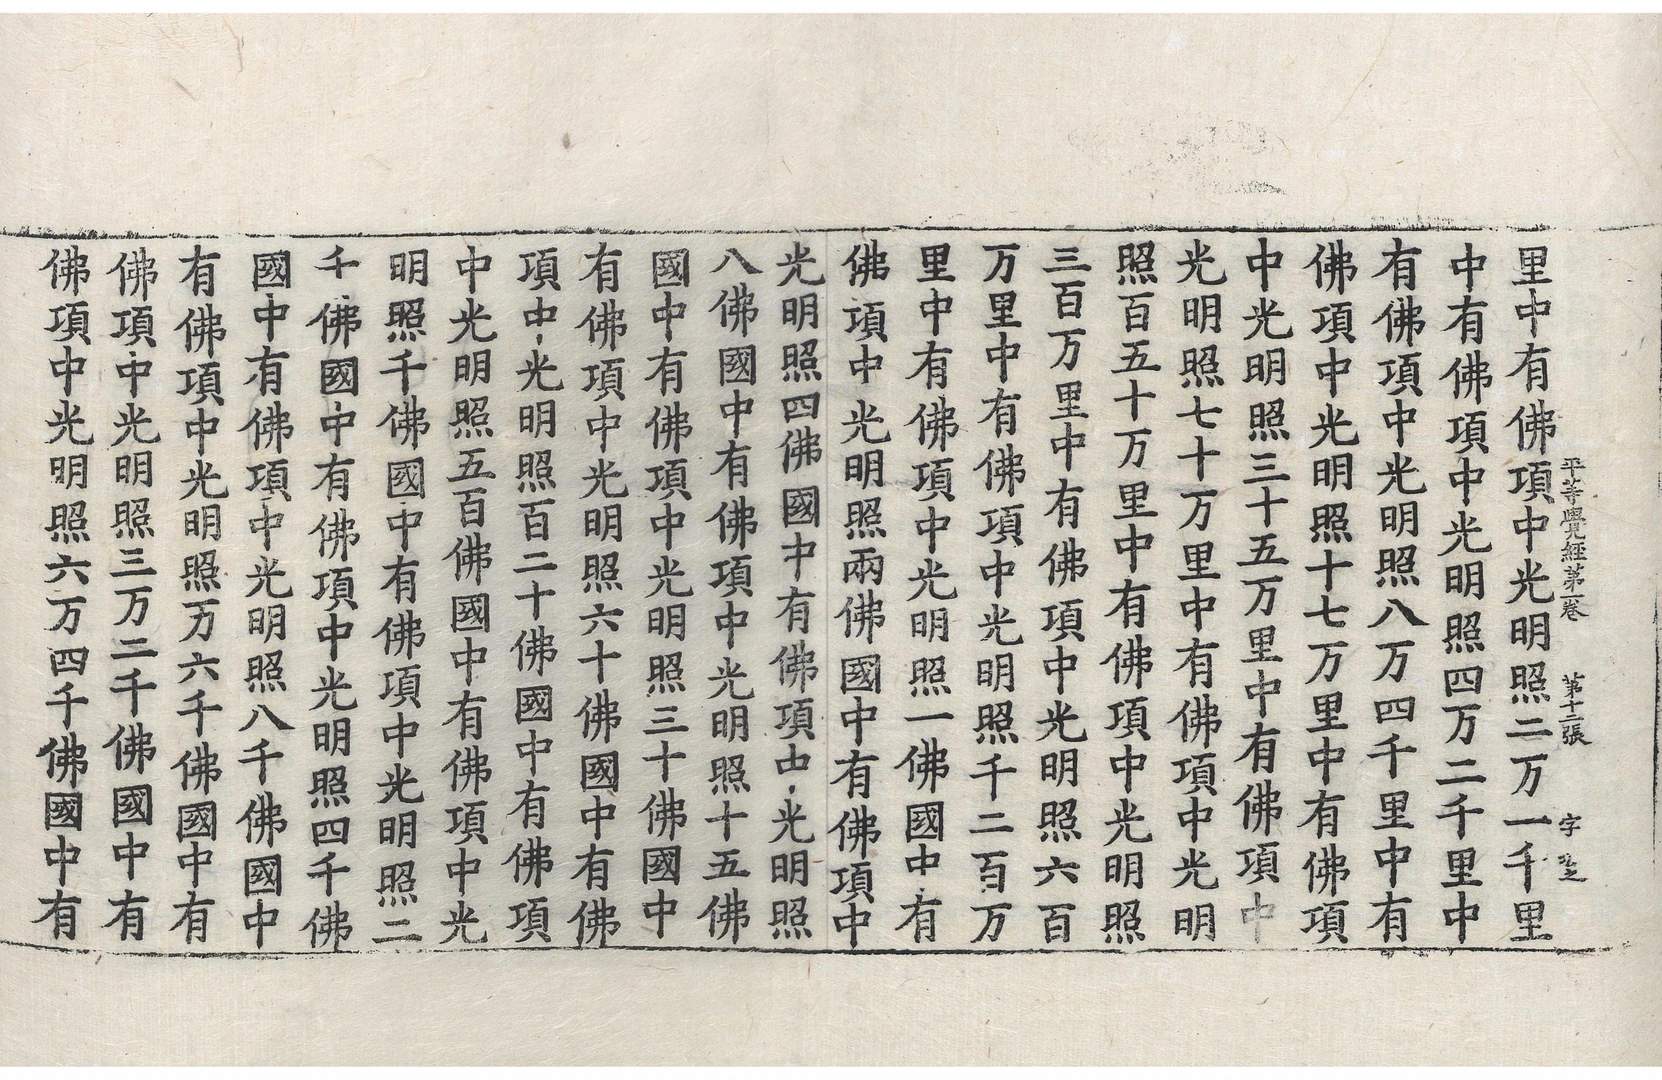 平等覺經第一卷 第十二張 字
里中有佛項中光明照二万一千里
中有佛項中光明照四万二千里中
有佛項中光明照八万四千里中有
佛項中光明照十七万里中有佛項
中光明照三十五万里中有佛項中
光明照七十万里中有佛項中光明
照百五十万里中有佛項中光明照
三百万里中有佛項中光明照六百
万里中有佛項中光明照千二百万
里中有佛項中光明照一佛國中有
佛項中光明照兩佛國中有佛項中
光明照四佛國中有佛項中光明照
八佛國中有佛項中光明照十五佛
國中有佛項中光明照三十佛國中
有佛項中光明照六十佛國中有佛
項中光明照百二十佛國中有佛項
中光明照五百佛國中有佛項中光
明照千佛國中有佛項中光明照二
千佛國中有佛項中光明照四千佛
國中有佛項中光明照八千佛國中
有佛項中光明照万六千佛國中有
佛項中光明照三万二千佛國中有
佛項中光明照六万四千佛國中有